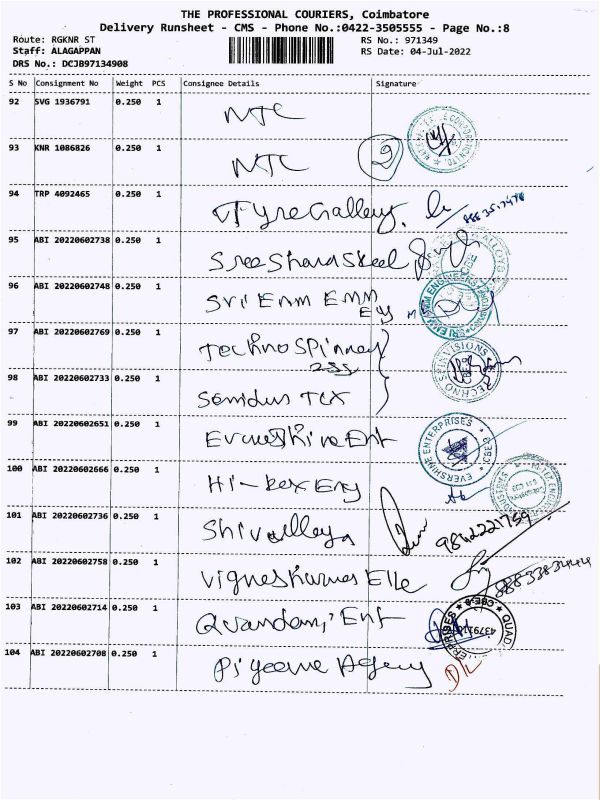 THE PROFESSIONAL COURIERS, Coimbatore
Delivery Runsheet - CMS - Phone No.:0422-3505555 - Page No.:8
Route: RGKNR ST RS No.: 971349
Staff: ALAGAPPAN RS Date: 04-Jul-2022
DRS No.: DCJB97134908
S No Consignment No Weight PCS Consignee Details Signature
92 SVG 1936791 0.250 1
NTC
93 KNR 1086826 0.250 1
NTC 2
94 TRP 4092465 0.250 1
Tyre Galley.
95 ABI 20220602738 0.250 1
Sree Shard Steel
96 ABI 20220602748 0.250 1
Sri Emm Emm
97 ABI 20220602769 0.250 1
Techno Spinney
TECHNO SPINVISIONS
98 ABI 20220602733 0.250 1
Tex
99 ABI 20220602651 0.250 1
Ent
EVERSHINE ENTERPRISES CBE-6
100 ABI 20220602666 0.250 1
Hi-Rex Eng
101 ABI 20220602736 0.250 1
Shivalley 9842221759
102 ABI 20220602758 0.250 1
Elle
103 ABI 20220602714 0.250 1
Ent
QUAD
104 ABI 20220602708 0.250 1
Agency